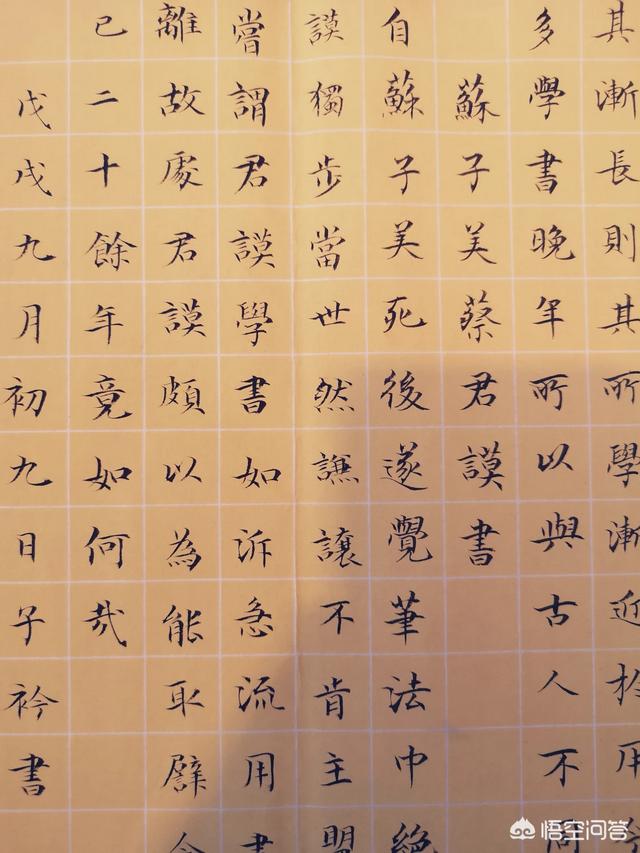 其漸長則其所學漸近於用今
多學書晚年所以與古人不同
蘇子美蔡君謨書
自蘇子美死後遂覺筆法中絕
謨獨步當世然謙讓不肯主盟
嘗謂君謨學書如泝急流用
離故處君謨頗以為能取譬今
已二十餘年竟如何哉
戊戌九月初九日子衿書
悟空问答